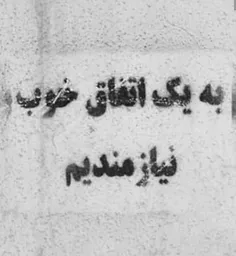 به یک اتفاق خوب
نیازمندیم